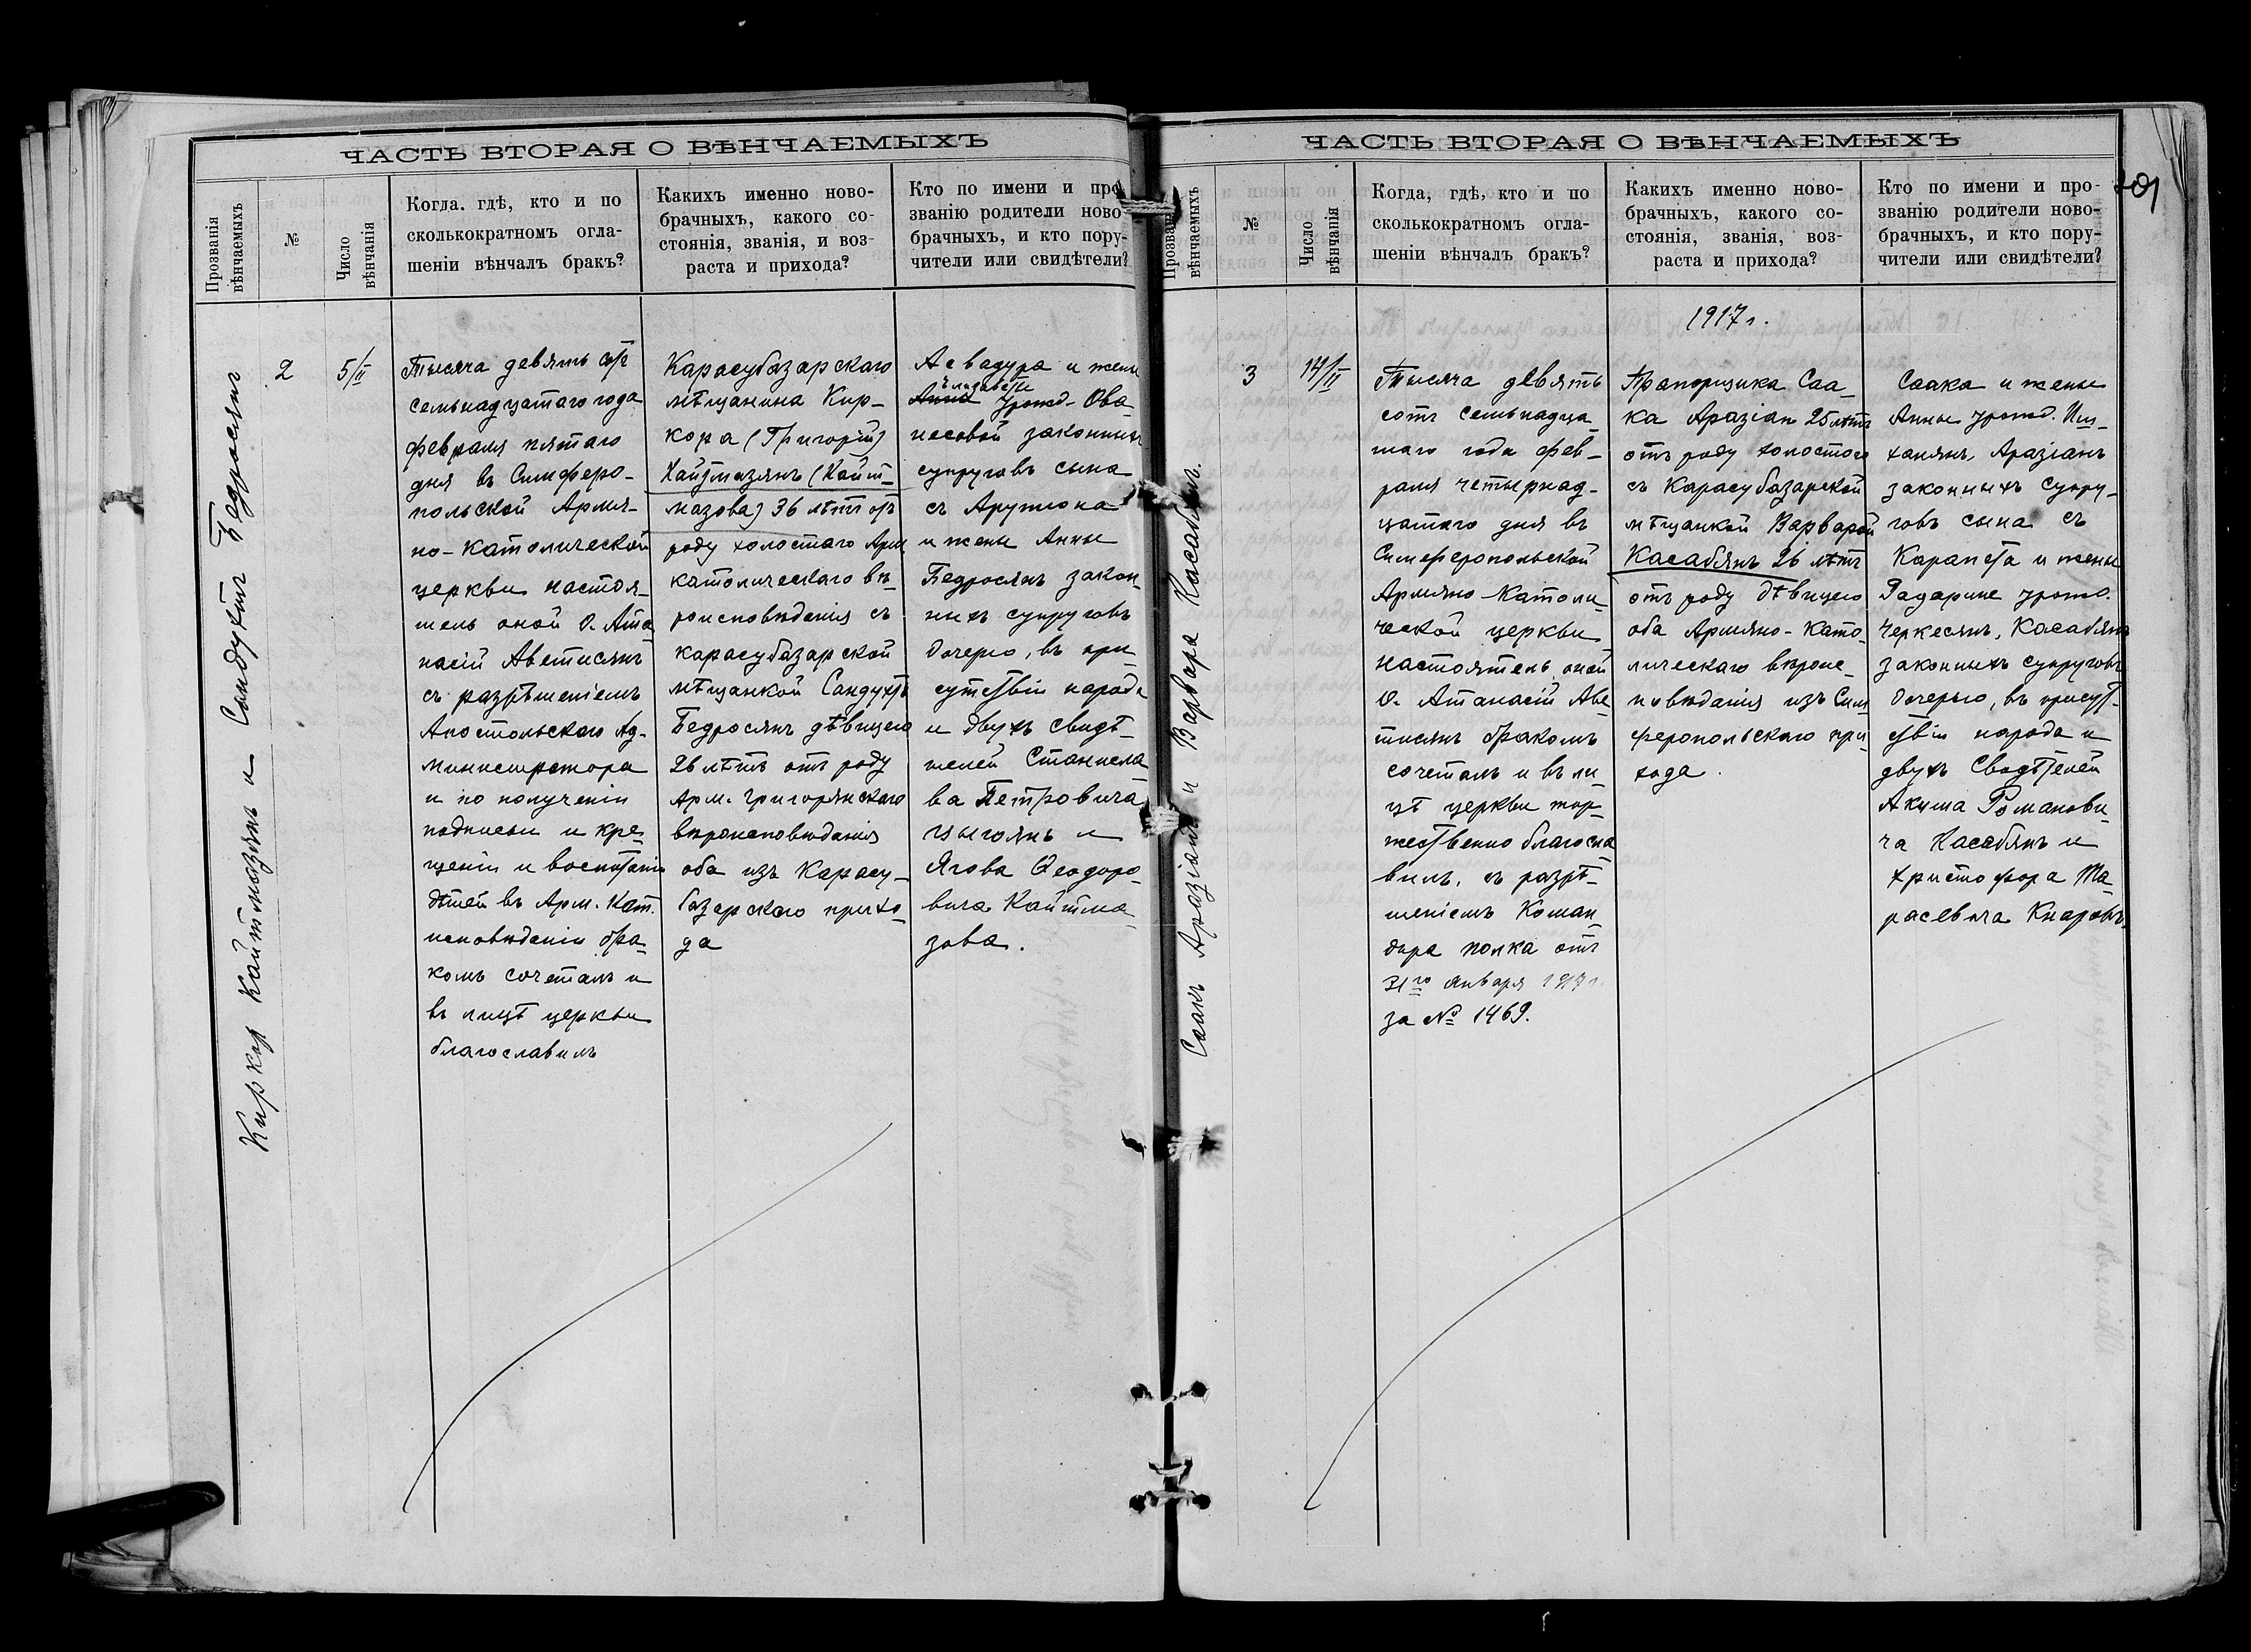 ЧАСТЬ ВТОРАЯ О ВѢНЧАЕМЫХЪ
Прозванія
вѣнчаемыхъ
№
Число
вѣнчанія
Когда. гдѣ, кто и по
сколькократномъ огла-
шеніи вѣнчалъ бракъ?
Какихъ именно ново-
брачныхъ, какого со-
стоянія, званія, и воз-
раста и прихода?
Кто по имени и про-
званію родители ново-
брачныхъ, и кто пору-
чители или свидѣтели?
Киркор Кайтмазянъ и Сандухтъ Бедросянъ
2
5/II
Тысяча девять сотъ
семьнадцатаго года
февраля пятаго
дня въ Симферо-
польской Армя-
но-католической
церкви настоя-
тель оной О. Ата
насій Аветисянъ
съ разрѣшеніемъ
Апостольскаго Ад-
министратора
и по полученіи
подписки и кре-
щеніи и воспитаніи
дѣтей въ Арм. Кат.
исповѣданіи бра-
комъ сочеталъ и
въ лицѣ церкви
благославилъ
Карасубазарскаго
мѣщанина Кир-
кора (Григорій)
Кайтмазянъ (Кайт-
мазова) 36 лѣтъ отъ
роду холостаго Арм
католическаго вѣ-
роисповѣданія съ
карасубазарской
мѣщанкой Сандухтъ
Бедросянъ дѣвицею
26 лѣтъ отъ роду
Арм. Григорянскаго
вѣроисповѣданія
оба изъ Карасу-
базарскаго прихо-
да
Асвадура и жены
Елизаветы
Анны урожд. Ова-
несовой законныхъ
супруговъ сына
съ Арутюна
и жены Анны
Бедросянъ закон-
ныхъ супруговъ
дочерью, въ при-
сутствіи народа
и двухъ свидѣ-
телей Станисла-
ва Петровича
Цыгоянъ и
Якова Ѳеодоро-
вича Кайтма-
зова.
ЧАСТЬ ВТОРАЯ О ВѢНЧАЕМЫХЪ
201
Прозванія
вѣнчаемыхъ
№
Число
вѣнчанія
Когда, гдѣ, кто и по
сколькократномъ огла-
шеніи вѣнчалъ бракъ?
Какихъ именно ново-
брачныхъ, какого со-
стоянія, званія, воз-
раста и прихода?
Кто по имени и про-
званію родители ново-
брачныхъ, и кто пору-
чители или свидѣтели?
Саакъ Аразіанъ и Варвара Касабянъ.
3
14/II
Тысяча девять
сотъ семьнадца-
таго года фев-
раля четырнад-
цатаго дня въ
Симферопольской
Армяно-Католи-
ческой церкви
настоятель оной
О. Атанасій Аве-
тисянъ бракомъ
сочеталъ и въ ли-
цѣ церкви тор-
жественно благосла-
вилъ, съ разрѣ-
шеніемъ Коман-
дира полка отъ
31го января 1917г.
за № 1469.
1917г.
Прапорщика Саа-
ка Аразіан 25 лѣтъ
отъ роду холостого
съ Карасубазарской
мѣщанкой Варварой
Касабянъ 26 лѣтъ
отъ роду дѣвицею
оба Армяно-като-
лическаго вѣроис-
повѣданія изъ Сим
феропольскаго при-
хода.
Саака и жены
Анны урожд.
Аразіанъ
законныхъ супру-
говъ сына съ
Карапета и жены
урожд.
Черкесянъ, Касабянъ
законныхъ супруговъ
дочерью, въ присут-
ствіи народа и
двухъ Свидѣтелей
Акима Романови-
ча Касабянъ и
Христофора Та-
расевича